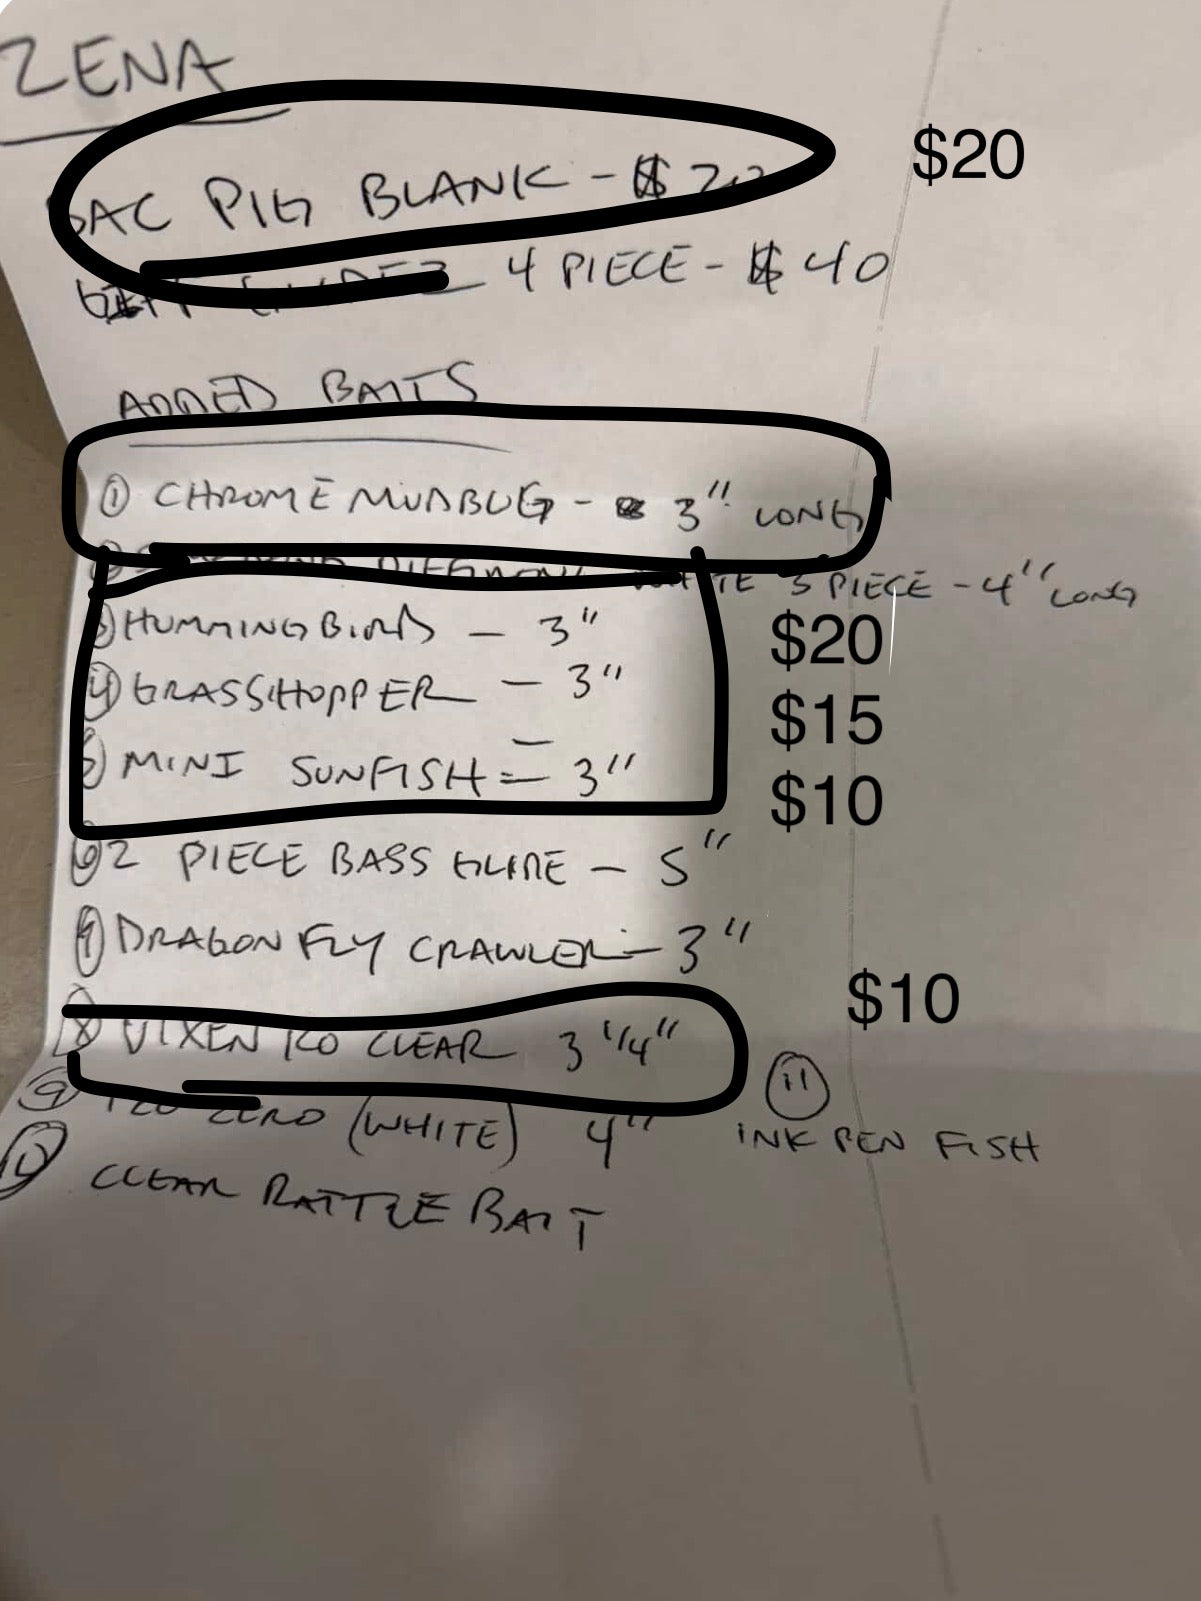 ZENA
PIG BLANK - $20
$20
4 PIECE - $40
ADDED BAITS
① CHROME MUDBUG - 3" LONG
3 PIECE - 4" LONG
HUMMINGBIRD - 3"
$20
④ GRASSHOPPER - 3"
$15
MINI SUNFISH = 3"
$10
⑥ 2 PIECE BASS GLIDE - 5"
⑦ DRAGON FLY CRAWLER - 3"
$10
⑧ VIXEN RO CLEAR 3 1/4"
⑨ ZERO (WHITE) 4"
⑪
INK PEN FISH
⑩ CLEAR RATTLE BAIT